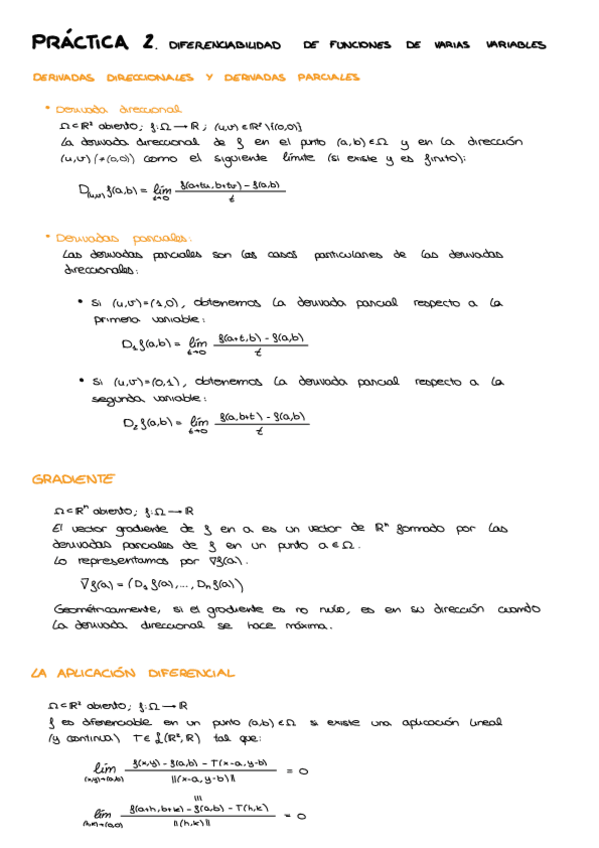 PRÁCTICA 2. DIFERENCIABILIDAD DE FUNCIONES DE VARIAS VARIABLES
DERIVADAS DIRECCIONALES Y DERIVADAS PARCIALES
* Derivada direccional
Ω⊂ℝ² abierto; f:Ω→ℝ; (u,v)∈ℝ²\{(0,0)}
La derivada direccional de f en el punto (a,b)∈Ω y en la dirección
(u,v)(≠(0,0)) como el siguiente límite (si existe y es finito):
D(u,v)f(a,b) = lím t→0 f(a+tu,b+tv) - f(a,b) / t
* Derivadas parciales:
Las derivadas parciales son los casos particulares de las derivadas
direccionales:
• Si (u,v)=(1,0), obtenemos la derivada parcial respecto a la
primera variable:
D₁f(a,b) = lím t→0 f(a+t,b) - f(a,b) / t
• Si (u,v)=(0,1), obtenemos la derivada parcial respecto a la
segunda variable:
D₂f(a,b) = lím t→0 f(a,b+t) - f(a,b) / t
GRADIENTE
Ω⊂ℝⁿ abierto; f:Ω→ℝ
El vector gradiente de f en a es un vector de ℝⁿ formado por las
derivadas parciales de f en un punto a∈Ω.
Lo representamos por ∇f(a).
∇f(a) = (D₁f(a),..., Dₙf(a))
Geométricamente, si el gradiente es no nulo, es en su dirección cuando
la derivada direccional se hace máxima.
LA APLICACIÓN DIFERENCIAL
Ω⊂ℝ² abierto; f:Ω→ℝ
f es diferenciable en un punto (a,b)∈Ω si existe una aplicación lineal
(y continua) T∈ℒ(ℝ²,ℝ) tal que:
lím (x,y)→(a,b) f(x,y) - f(a,b) - T(x-a,y-b) / ||(x-a,y-b)|| = 0
≡
lím (h,k)→(0,0) f(a+h,b+k) - f(a,b) - T(h,k) / ||(h,k)|| = 0